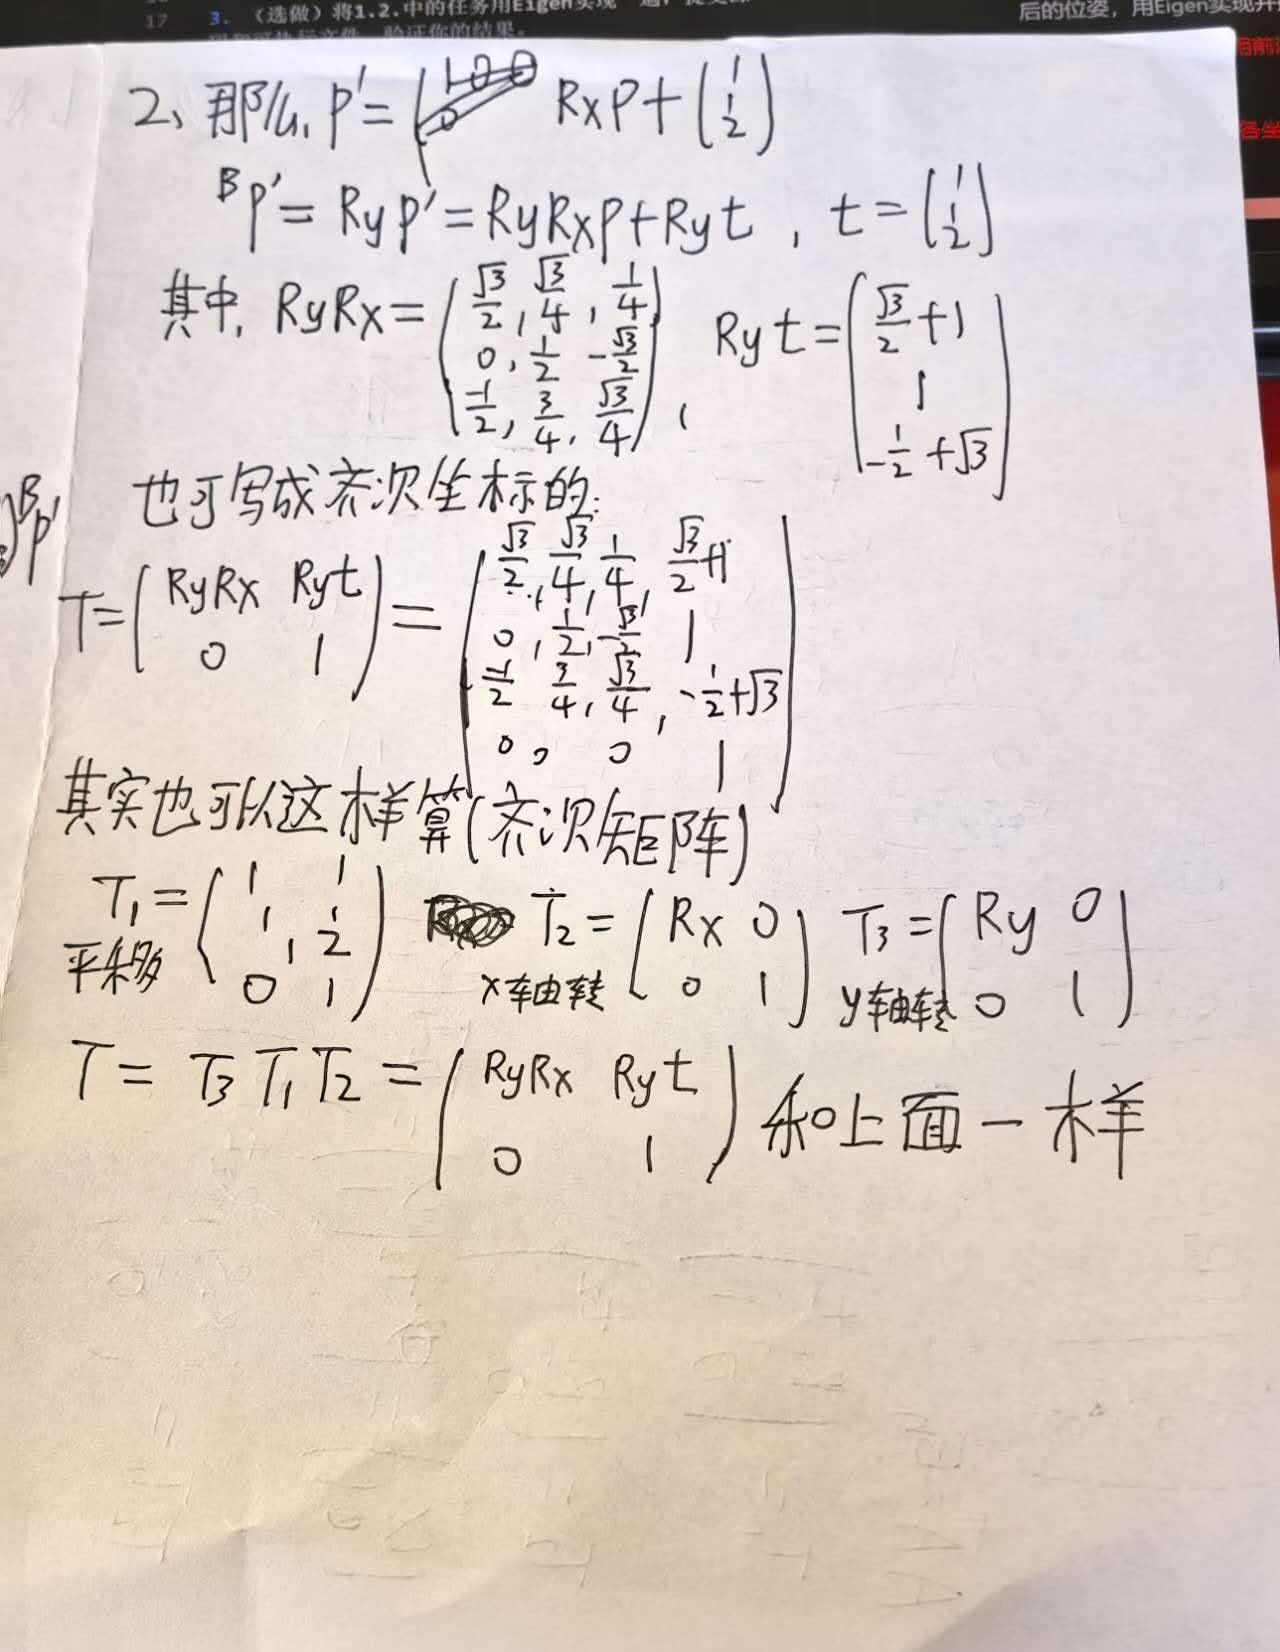 17 3. （选做）将1.2.中的任务用Eigen实现
后的位姿，用Eigen实现并
验证你的结果。
2、那么, p' = Rxp + (1 1 2)
ᴮp' = Ry p' = RyRxp + Ryt , t = (1 1 2)
其中, RyRx = (√3/2, √3/4, 1/4
0, 1/2 -√3/2
-1/2, 3/4, √3/4) , Ryt = (√3/2 + 1
1
-1/2 + √3)
ᴮp'
也可写成齐次坐标的:
T = (RyRx Ryt
0 1) = (√3/2, √3/4, 1/4, √3/2 + 1
0, 1/2, -√3/2, 1
-1/2 3/4, √3/4, -1/2 + √3
0 0 0 1)
其实也可以这样算(齐次矩阵)
T₁ = (1 1
1 1
1 2
0 1) T₂ = (Rx 0
0 1) T₃ = (Ry 0
0 1)
平移 x轴转 y轴转
T = T₃ T₁ T₂ = (RyRx Ryt
0 1) 和上面一样